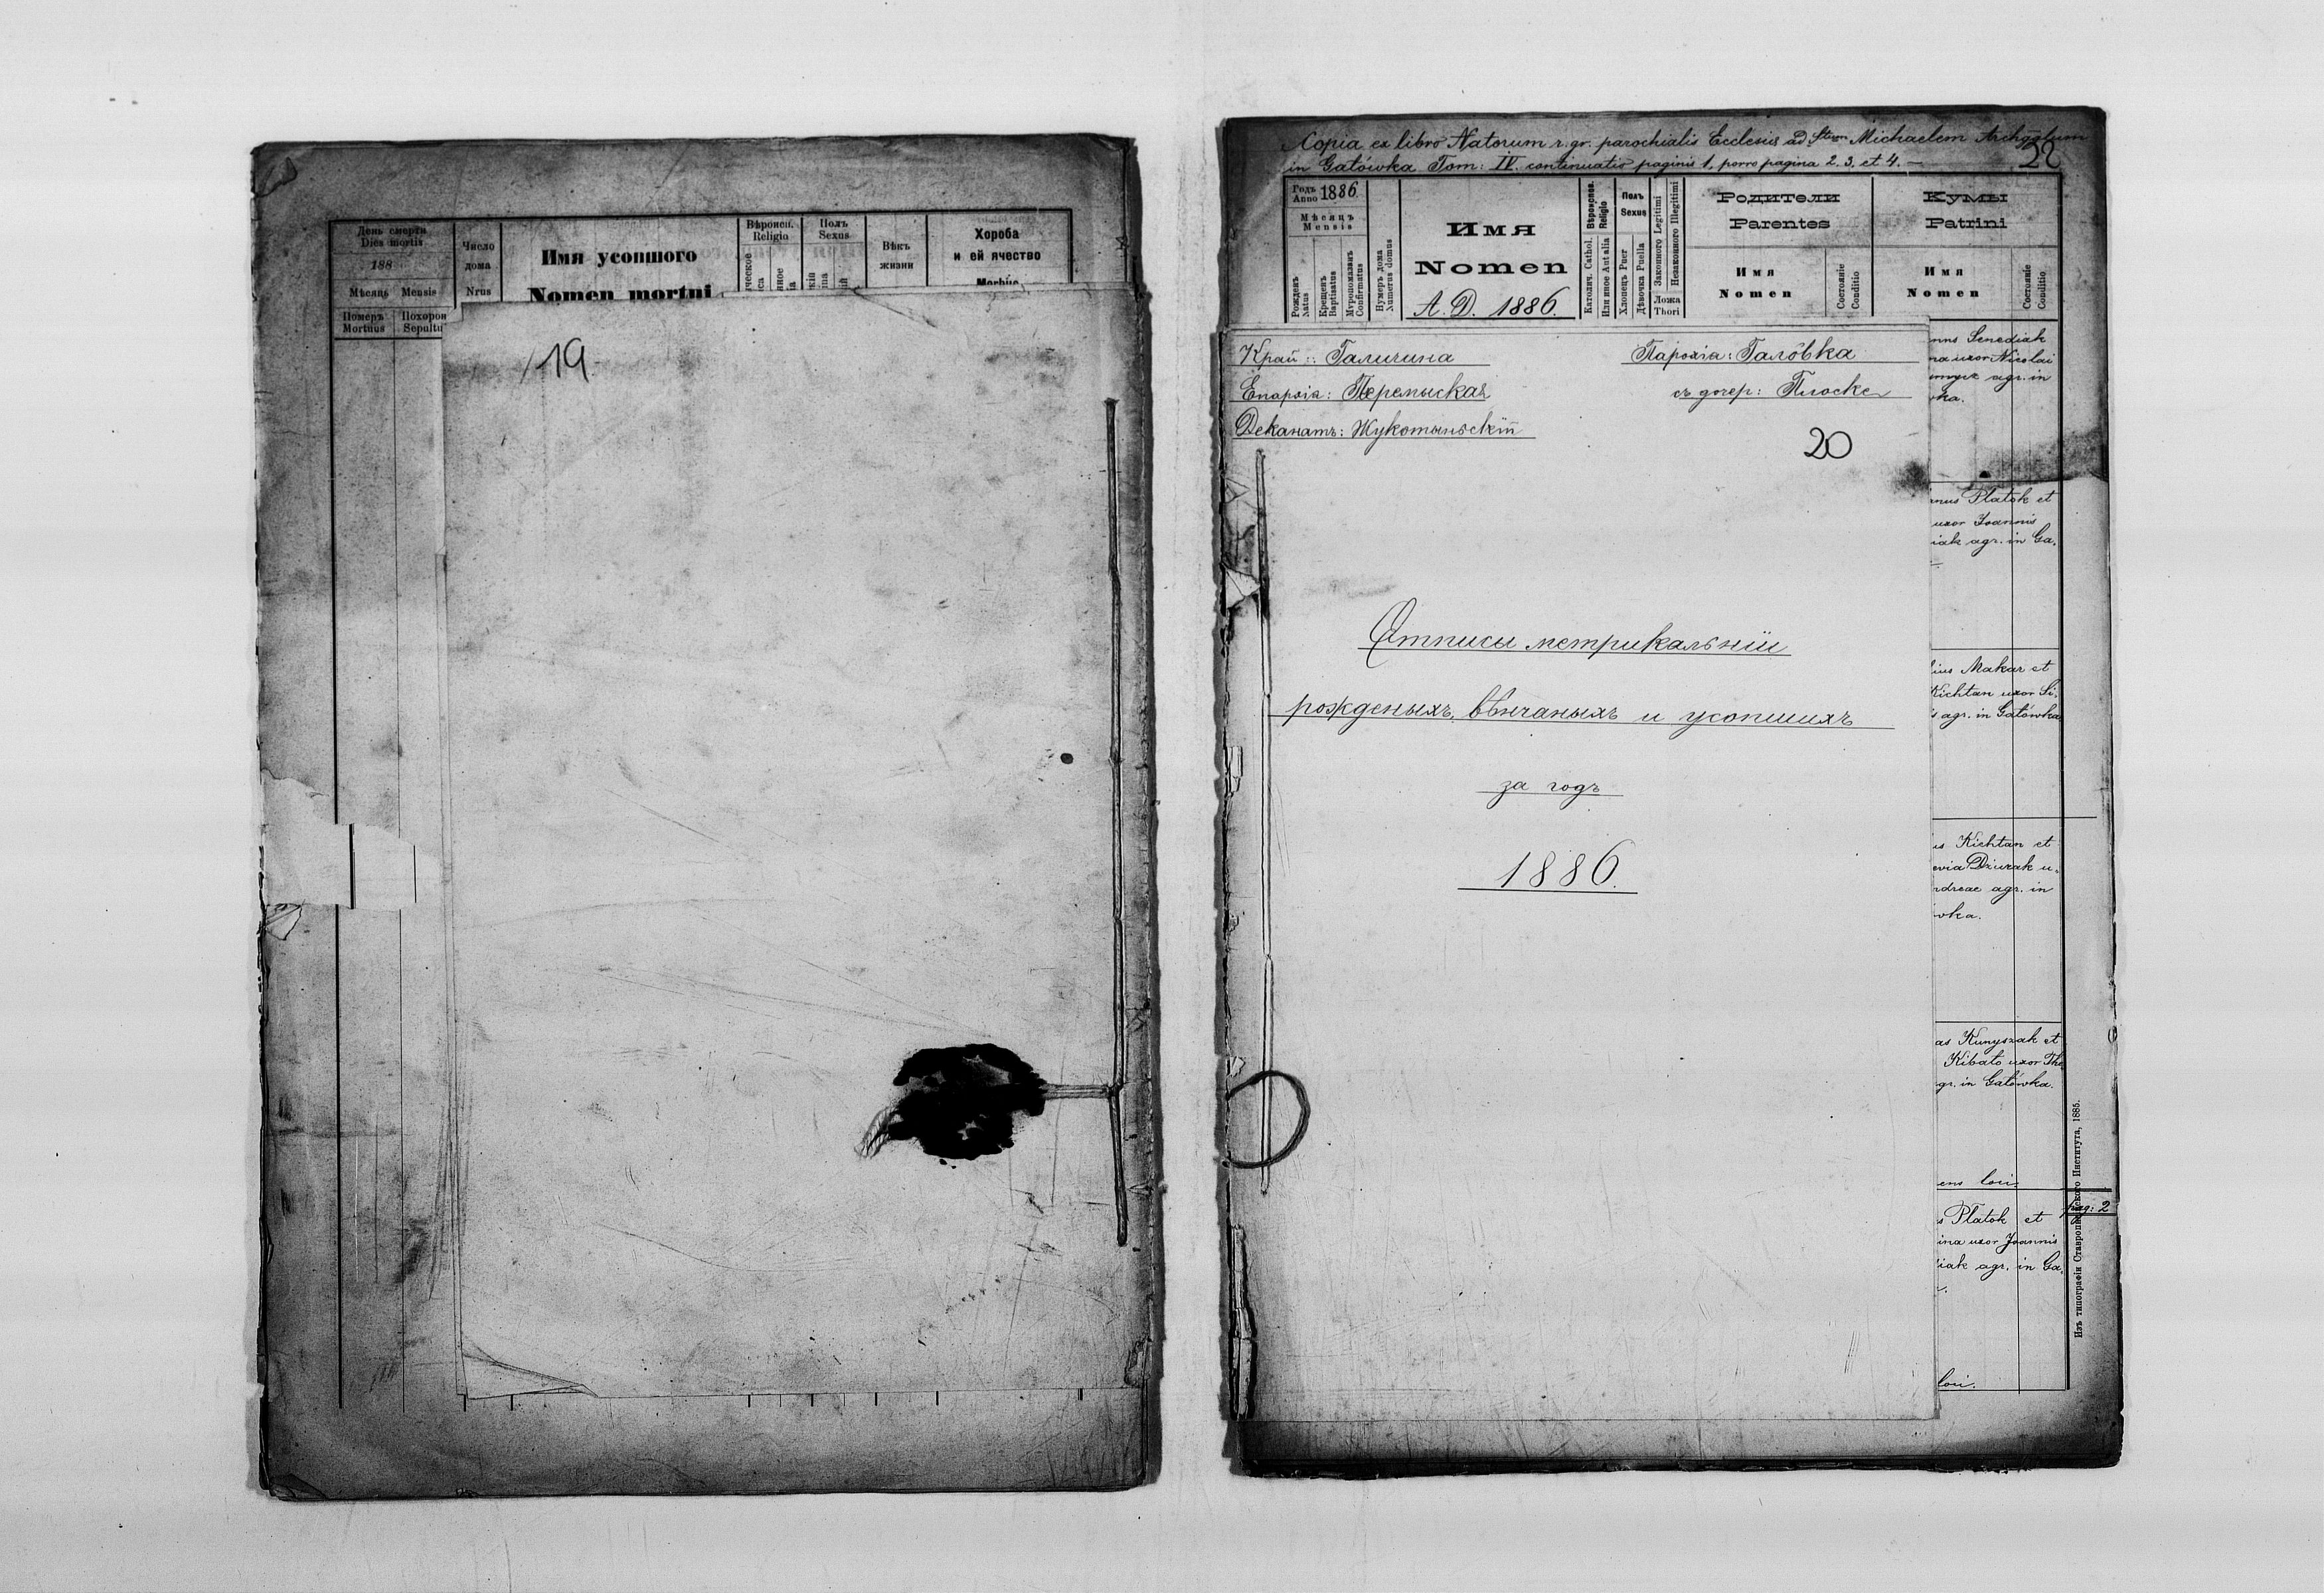 День смерти
Dies mortis
188
Мѣсяць Mensis
Померъ
Mortuus
Похорон
Sepultu
Число
дома
Nrus
Имя усопшого
Nomen mortui
Вѣроисп.
Religio
Полъ
Sexus
Вѣкъ
жизни
Хороба
и ей ячество
Morbus
19.
Copia ex libro Natorum r. gr. parochialis Ecclesis ad Stum Michaelem Archgglum
in Gałówka Tom: IV. continuatio paginis 1, porro pagina 2. 3. et 4. —
22
Годъ
Anno 1886.
Мѣсяцъ
Mensis
Рожденъ
Natus
Крещенъ
Baptisatus
Мѵропомазанъ
Confirmatus
Нумеръ дома
Numerus domus
Имя
Nomen
A. D. 1886.
Вѣроиспов.
Religio
Католич. Cathol.
Или иное Aut alia
Полъ
Sexus
Хлопецъ Puer
Дѣвочка Puella
Законного Legitimi
Незаконного Illegitimi
Ложа
Thori
Родители
Parentes
Имя
Nomen
Состояніе
Conditio
Кумы
Patrini
Имя
Nomen
Состояніе
Conditio
Край: Галичина
Парохія: Галôвка
Епархія: Перемыская
съ дочер: Плоске
Деканатъ: Жукотыньскій
20
Отписы метрикальніи
рожденыхъ, вѣнчаныхъ и усопшихъ
за годъ
1886.
nns Senediak
na uxor Nicolai
agr. in
wka.
anus Platok et
uxor Joannis
iak agr. in Ga,
ius Makar et
Kichtan uxor Si,
s agr. in Gałówka
us Kichtan et
evia Dziurak u,
ndreae agr. in
wka.
as Kunyszak et
Kibato uxor The,
gr. in Gałówka.
ens loci
pag: 2
s Platok et
ina uxor Joannis
iak agr. in Ga,
loci.
Изъ типографіи Ставропигійского Института, 1885.